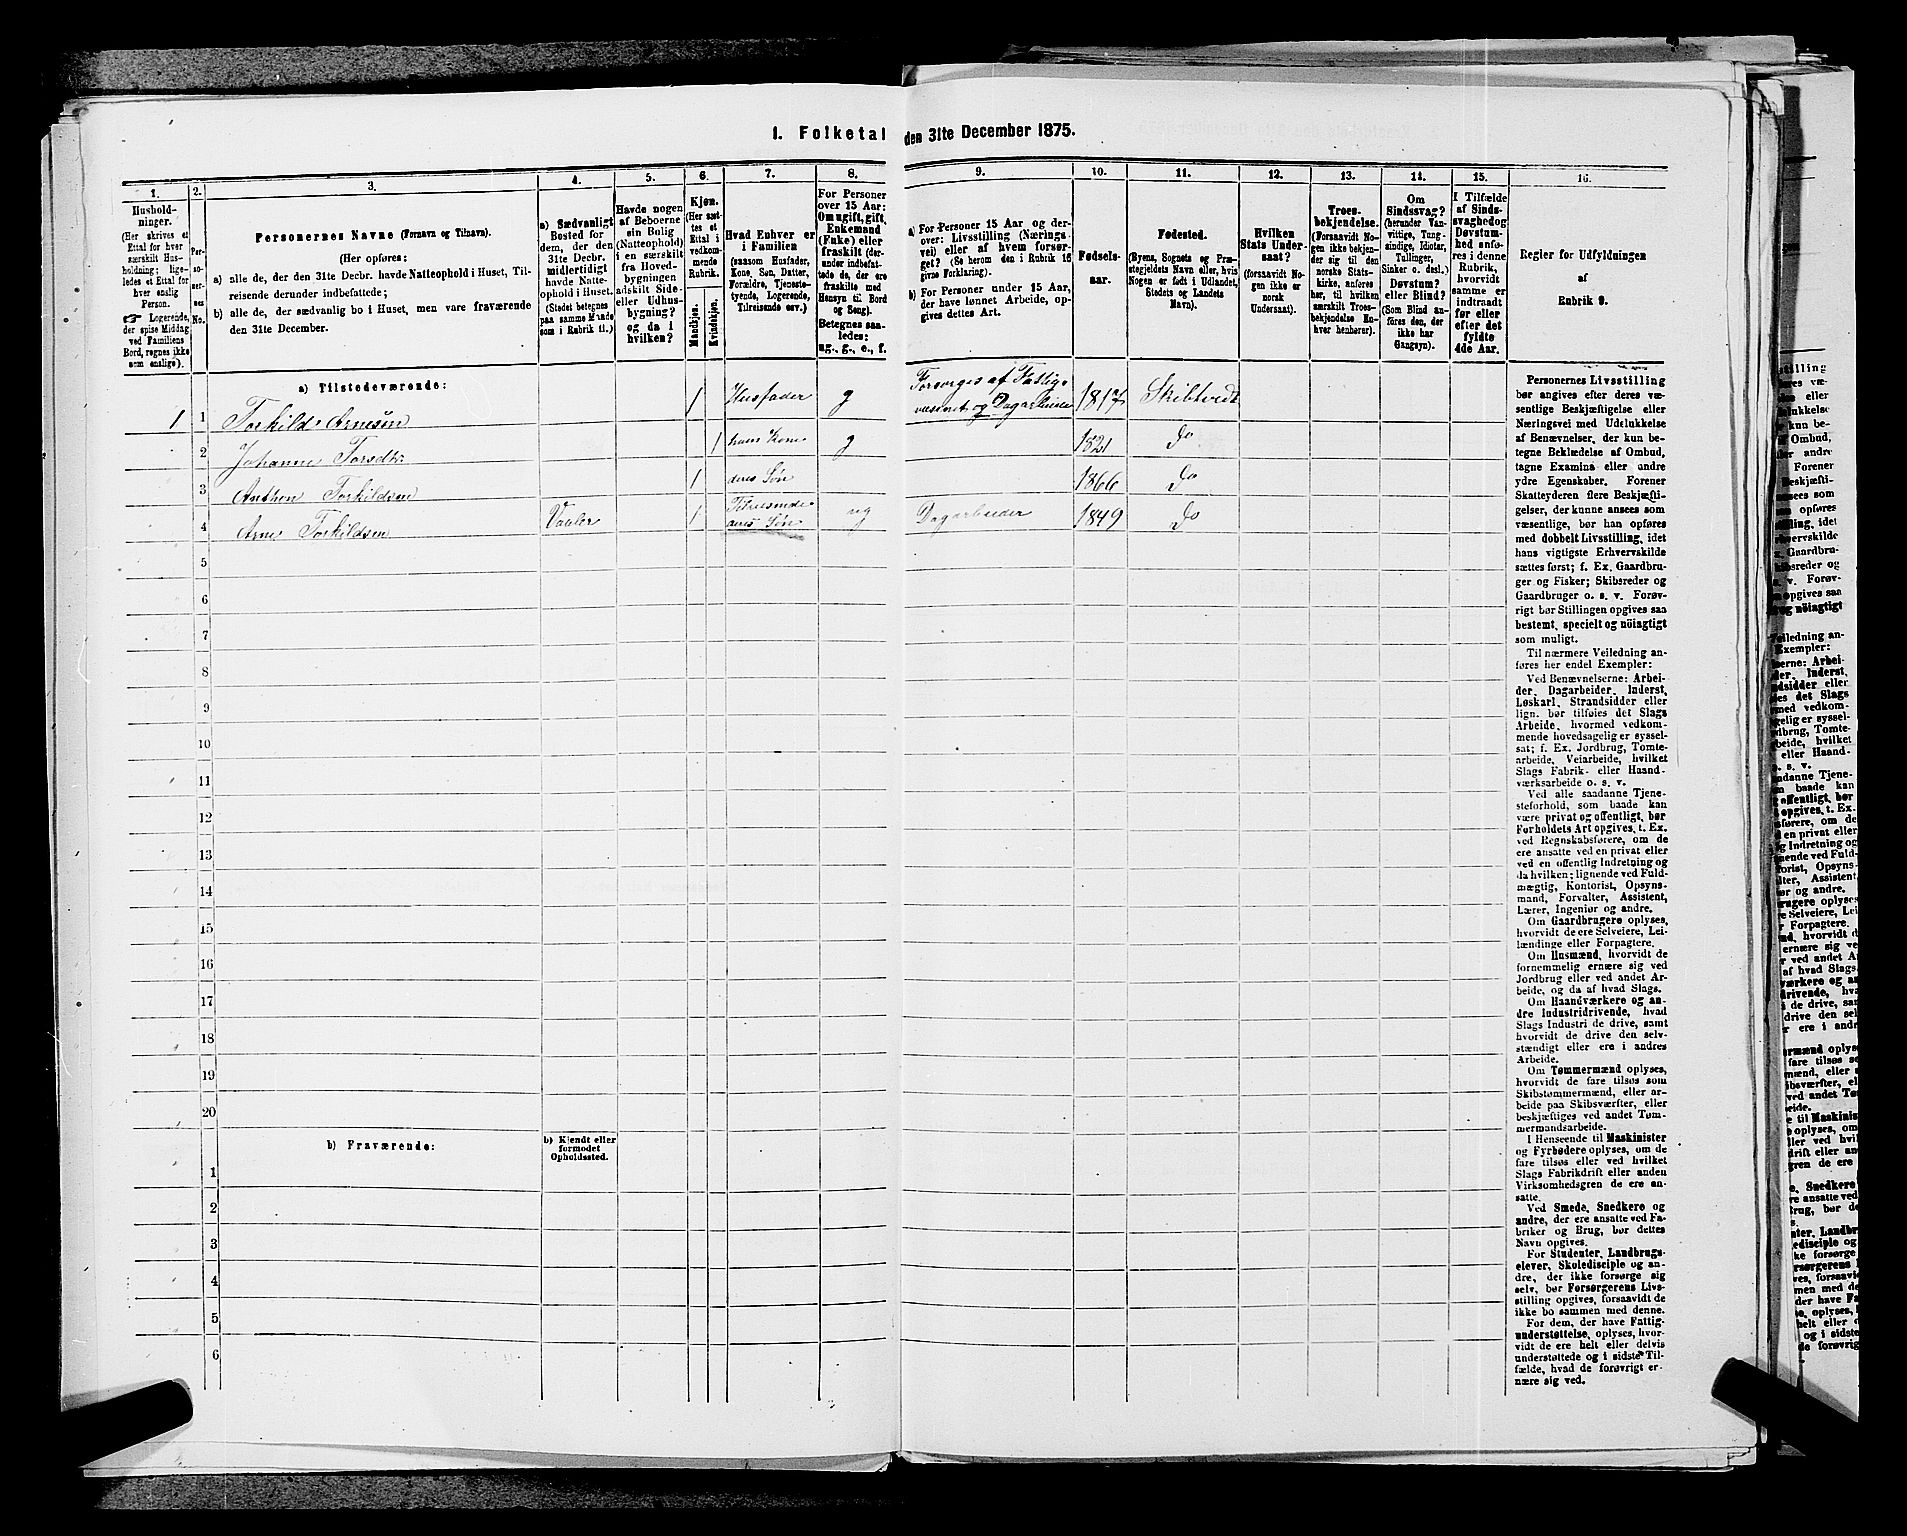 1. Folketal den 31te December 1875.
1. 2. 3. 4. 5. 6. 7. 8. 9. 10. 11. 12. 13. 14. 15. 16.
Hushold-
ninger.
(Her skrives et
Ettal for hver
særskilt Hus-
holdning; lige-
ledes et Ettal for
hver enslig
Person.
☞ Logerende,
der spise Middag
ved Familiens
Bord, regnes ikke
som enslige).
Per-
so-
ner-
nes
No.
Personernes Navne (Fornavn og Tilnavn).
(Her opføres:
a) alle de, der den 31te Decbr. havde Natteophold i Huset, Til-
reisende derunder indbefattede;
b) alle de, der sædvanlig bo i Huset, men vare fraværende
den 31te December.
a) Sædvanligt
Bosted for
dem, der den
31te Decbr.
midlertidigt
havde Natte-
ophold i Huset.
(Stedet betegnes
paa samme Maade
som i Rubrik 11.)
Havde nogen
af Beboerne
sin Bolig
(Natteophold)
i en særskilt
fra Hoved-
bygningen
adskilt Side-
eller Udhus-
bygning?
og da i
hvilken?
Kjøn.
(Her sæt-
tes et
Ettal i
vedkom-
mende
Rubrik.
Mandkjøn.
Kvindekjøn.
Hvad Enhver er
i Familien
(saasom Husfader,
Kone, Søn, Datter,
Forældre, Tjeneste-
tyende, Logerende,
Tilreisende osv.)
For Personer
over 15 Aar:
Om ugift, gift,
Enkemand
(Enke) eller
fraskilt (der-
under indbefat-
tede de, der ere
fraskilte med
Hensyn til Bord
og Seng).
Betegnes saa-
ledes:
ug., g., e., f.
a) For Personer 15 Aar og der-
over: Livsstilling (Nærings-
vei) eller af hvem forsør-
get? (Se herom den i Rubrik 16
givne Forklaring).
b) For Personer under 15 Aar,
der have lønnet Arbeide, op-
gives dettes Art.
Fødsels-
aar.
Fødested.
(Byens, Sognets og Præ-
stegjeldets Navn eller, hvis
Nogen er født i Udlandet,
Stedets og Landets
Navn).
Hvilken
Stats Under-
saat?
(forsaavidt No-
gen ikke er
norsk
Undersaat).
Troes-
bekjendelse.
(Forsaavidt No-
gen ikke bekjen-
der sig til den
norske Stats-
kirke, anføres
her, til hvilken
særskilt Troes-
bekjendelse En-
hver henhører).
Om
Sindssvag?
(herunder Van-
vittige, Tung-
sindige, Idiotar,
Tullinger,
Sinker o. desl.)
Døvstum?
eller Blind?
(Som Blind an-
føres den, der
ikke har
Gangsyn).
I Tilfælde
af Sinds-
svaghed og
Døvstum-
hed anfø-
res i denne
Rubrik,
hvorvidt
samme er
indtraadt
før eller
efter det
fyldte
4de Aar.
Regler for Udfyldningen
af
Rubrik 9.
a) Tilstedeværende:
1 1 Torkild Arnesen 1 Husfader g Forsørges af Fattig-
væsenet og Dagarbeide 1817 Skibtvedt
2 Johanne Torsdtr. 1 hans Kone g 1821 Do
3 Anthon Torkildsen 1 deres Søn 1866 Do
4 Arne Torkildsen Vaaler 1 Tilreisende
deres Søn ug Dagarbeider 1849 Do
5
6
7
8
9
10
11
12
13
14
15
16
17
18
19
20
b) Fraværende:
b) Kjendt eller
formodet
Opholdssted.
1
2
3
4
5
6
Personernes Livsstilling
bør angives efter deres væ-
sentlige Beskjæftigelse eller
Næringsvei med Udelukkelse
af Benævnelser, der kun be-
tegne Beklædelse af Ombud,
tagne Examina eller andre
ydre Egenskaber. Forener
Skatteyderen flere Beskjæfti-
gelser, der kunne ansees som
væsentlige, bør han opføres
med dobbelt Livsstilling, idet
hans vigtigste Erhvervskilde
sættes først; f. Ex. Gaardbru-
ger og Fisker; Skibsreder og
Gaardbruger o. s. v. Forøv-
rigt bør Stillingen opgives saa
bestemt, specielt og nöiagtigt
som muligt.
Til nærmere Veiledning an-
føres her endel Exempler:
Ved Benævnelserne: Arbei-
der, Dagarbeider, Inderst,
Løskarl, Strandsidder eller
lign. bør tilføies det Slags
Arbeide, hvormed vedkom-
mende hovedsagelig er syssel-
sat; f. Ex. Jordbrug, Tomte-
arbeide, Veiarbeide, hvilket
Slags Fabrik- eller Haand-
værksarbeide o. s. v.
Ved alle saadanne Tjene-
steforhold, som baade kan
være privat og offentligt, bør
Forholdets Art opgives, t. Ex.
ved Regnskabsførere, om de
ere ansatte ved en privat eller
ved en offentlig Indretning og
da hvilken; lignende ved Fuld-
mægtig, Kontorist, Opsyns-
mand, Forvalter, Assistent,
Lærer, Ingeniør og andre.
Om Gaardbrugere oplyses,
hvorvidt de ere Selveiere, Lei-
lændinge eller Forpagtere.
Om Husmænd, hvorvidt de
fornemmelig ernære sig ved
Jordbrug eller ved andet Ar-
beide, og da af hvad Slags.
Om Haandværkere og an-
dre Industridrivende, hvad
Slags Industri de drive, samt
hvorvidt de drive den selv-
stændigt eller ere i andres
Arbeide.
Om Tømmermænd oplyses,
hvorvidt de fare tilsøs som
Skibstømmermænd, eller ar-
beide paa Skibsværfter, eller
beskjæftiges ved andet Tøm-
mermandsarbeide.
I Henseende til Maskinister
og Fyrbødere oplyses, om de
fare tilsøs eller ved hvilket
Slags Fabrikdrift eller anden
Virksomhedsgren de ere an-
satte.
Ved Smede, Snedkere og
andre, der ere ansatte ved Fa-
briker og Brug, bør dettes
Navn opgives.
For Studenter, Landbrugs-
elever, Skoledisciple og an-
dre, der ikke forsørge sig
selv, bør Forsørgerens Livs-
stilling opgives, forsaavidt de
ikke bo sammen med denne.
For dem, der have Fattig-
understøttelse, oplyses, hvor-
vidt de ere helt eller delvis
understøttede og i sidste Til-
fælde, hvad de forøvrigt er-
nære sig ved.